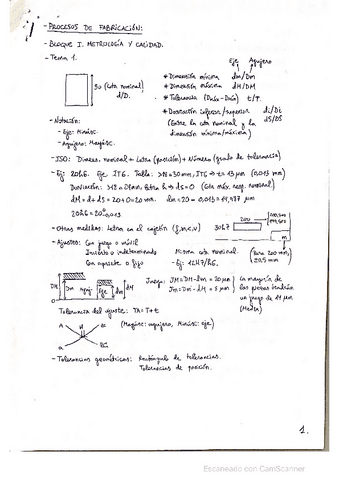 - PROCESOS DE FABRICACIÓN:
- BLOQUE I. METROLOGÍA Y CALIDAD.
- Tema 1.
Eje Agujero
30 (Cota nominal)
d/D.
* Dimensión mínima dm/Dm
* Dimensión máxima dM/DM
* Tolerancia t/T.
* Desviación inferior/superior di/Di
(Entre la cota nominal y la ds/DS
dimensión mínima/máxima)
- Notación:
- Eje: Minúsc.
- Agujero: Mayúsc.
- ISO: Dimens. nominal + Letra (posición) + Número (grado de tolerancia)
- Ej: 20h6. Eje IT6. Tabla: IT6 → t = 13 μm (0,013 mm)
Desviación: letra h → ds=0 (Cota máx. resp. nominal)
dM = d + ds = 20+0 = 20 mm. dm = 20 - 0,013 =
- Otras medidas: Letra en el cajetín (f, m, c, v) 30h7 200
- Ajustes: Con juego o móvil
Incierto o indeterminado
Con aprieto o fijo
Misma cota nominal.
- Ej: 12H7/h6.
(Para 200 mm,
±0,5 mm)
m
DM Dm aguj. Eje dm dM
Juego: JM = DM - dm = 30 μm
Jm = Dm - dM = 5 μm
La mayoría de
las piezas tendrán
un juego de
(Media)
Tolerancia del ajuste: TA = T + t
(Mayúsc: agujero, Minúsc: eje)
A H
a
- Tolerancias geométricas: Rectángulo de tolerancias.
Tolerancias de posición.
1.
Escaneado con CamScanner